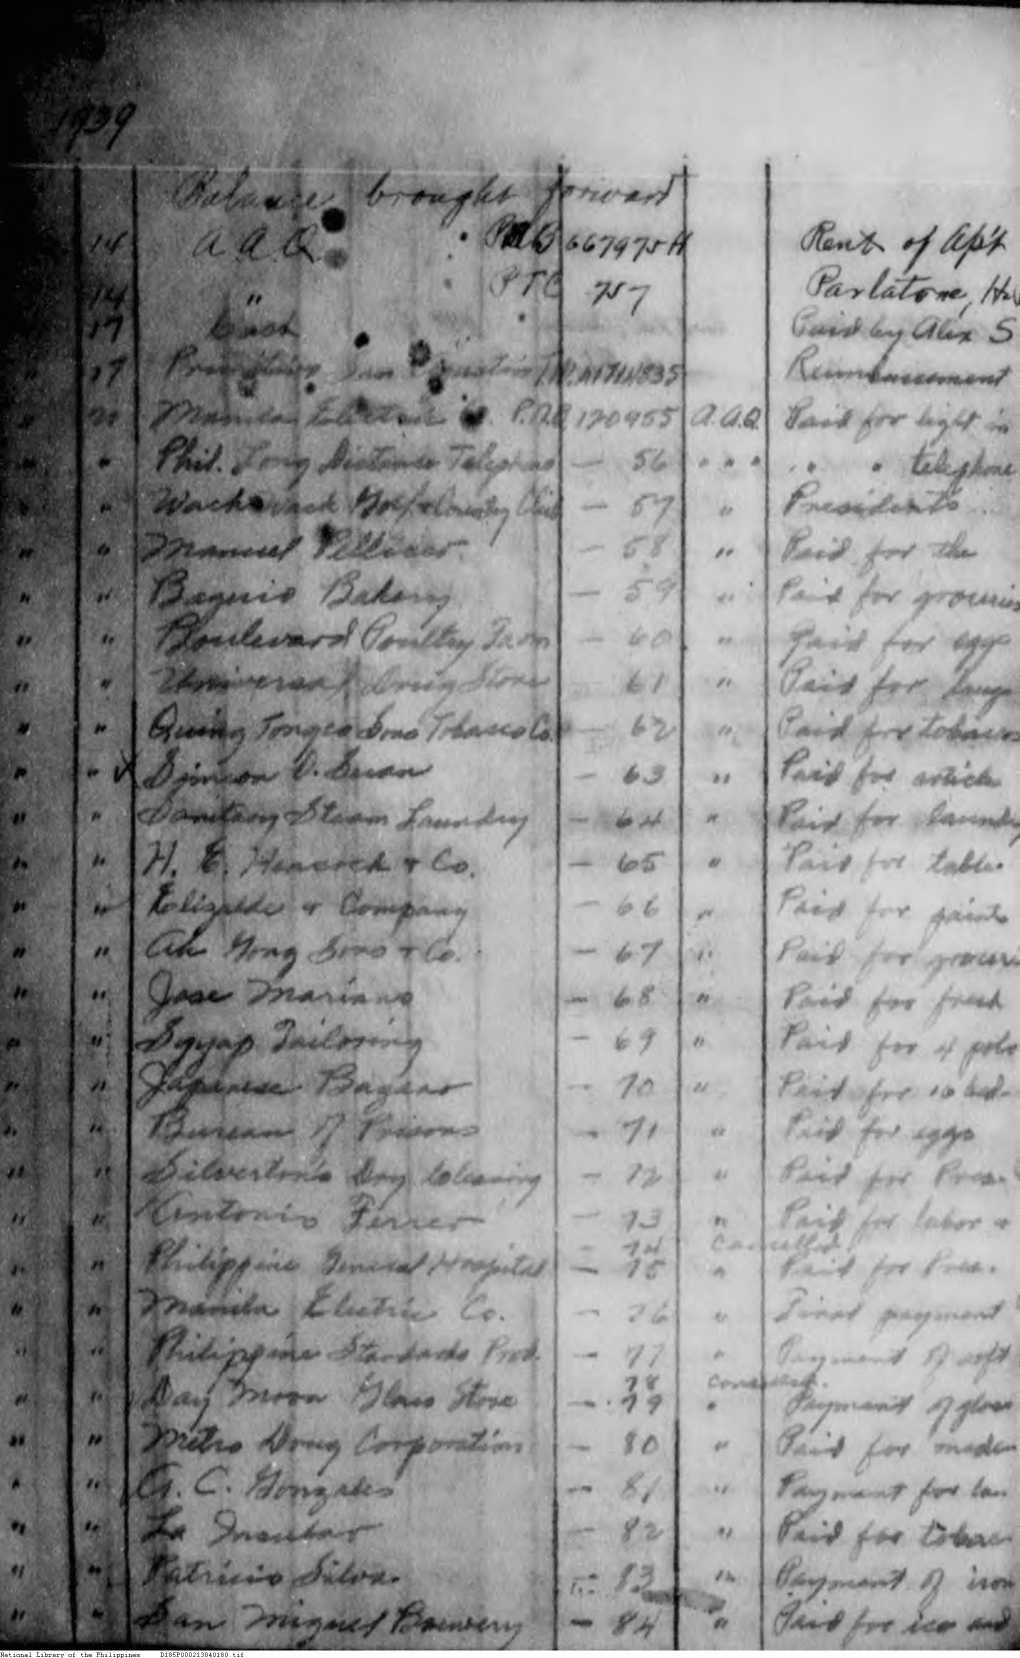 1939
Balance brought forward
14 A A Q " PNB 667975H Rent of Ap't
14 " " PTC 757 Parlatone,
17 Cash " Paid by Alex S
" 17 San 835
" " Manila Electric Co. P.N.B. 120955 A.A.Q. Paid for light in
" " Phil. Long Distance Telephone — 56 " " " " " telephone
" " Wack Wack Golf & Country Club — 57 " President's
" " Manuel Pellicer — 58 " Paid for the
" " Baguio Bakery — 59 " Paid for groceries
" " Boulevard Poultry Farm — 60 " Paid for egg
" " Universal Drug Store — 61 " Paid for
" " Quing Tongco Sons Tobacco Co. — 62 " Paid for tobacco
" " ✓ Simeon O. — 63 " Paid for article
" " Sanitary Steam Laundry — 64 " Paid for laundry
" " H. E. Heacock & Co. — 65 " Paid for table
" " Elizalde & Company — 66 " Paid for paint
" " Ah Gong Sons & Co. — 67 " Paid for groceri
" " Jose Mariano — 68 " Paid for fresh
" " Syyap Tailoring — 69 " Paid for 4 polo
" " Japanese Bazaar — 70 " Paid for 10 bed
" " Bureau of Prisons — 71 " Paid for eggs
" " Silverton's Dry Cleaning — 72 " Paid for Pres.
" " Antonio Ferrer — 73 " Paid for labor &
— 74 Cancelled
" " Philippine General Hospital — 75 " Paid for Pres.
" " Manila Electric Co. — 76 " Final payment
" " Philippine Standards Prod. — 77 " Payment of soft
78 Cancelled.
" " Day Moon Glass Store — 79 " Payment of glass
" " Metro Drug Corporation — 80 " Paid for medi
" " A. C. Gonzales — 81 " Payment for
" " La Insular — 82 " Paid for tobac
" " Patricio Silva. — 83 " Payment of iron
" " San Miguel Brewery — 84 " Paid for ice and
National Library of the Philippines D185P000213040180.tif